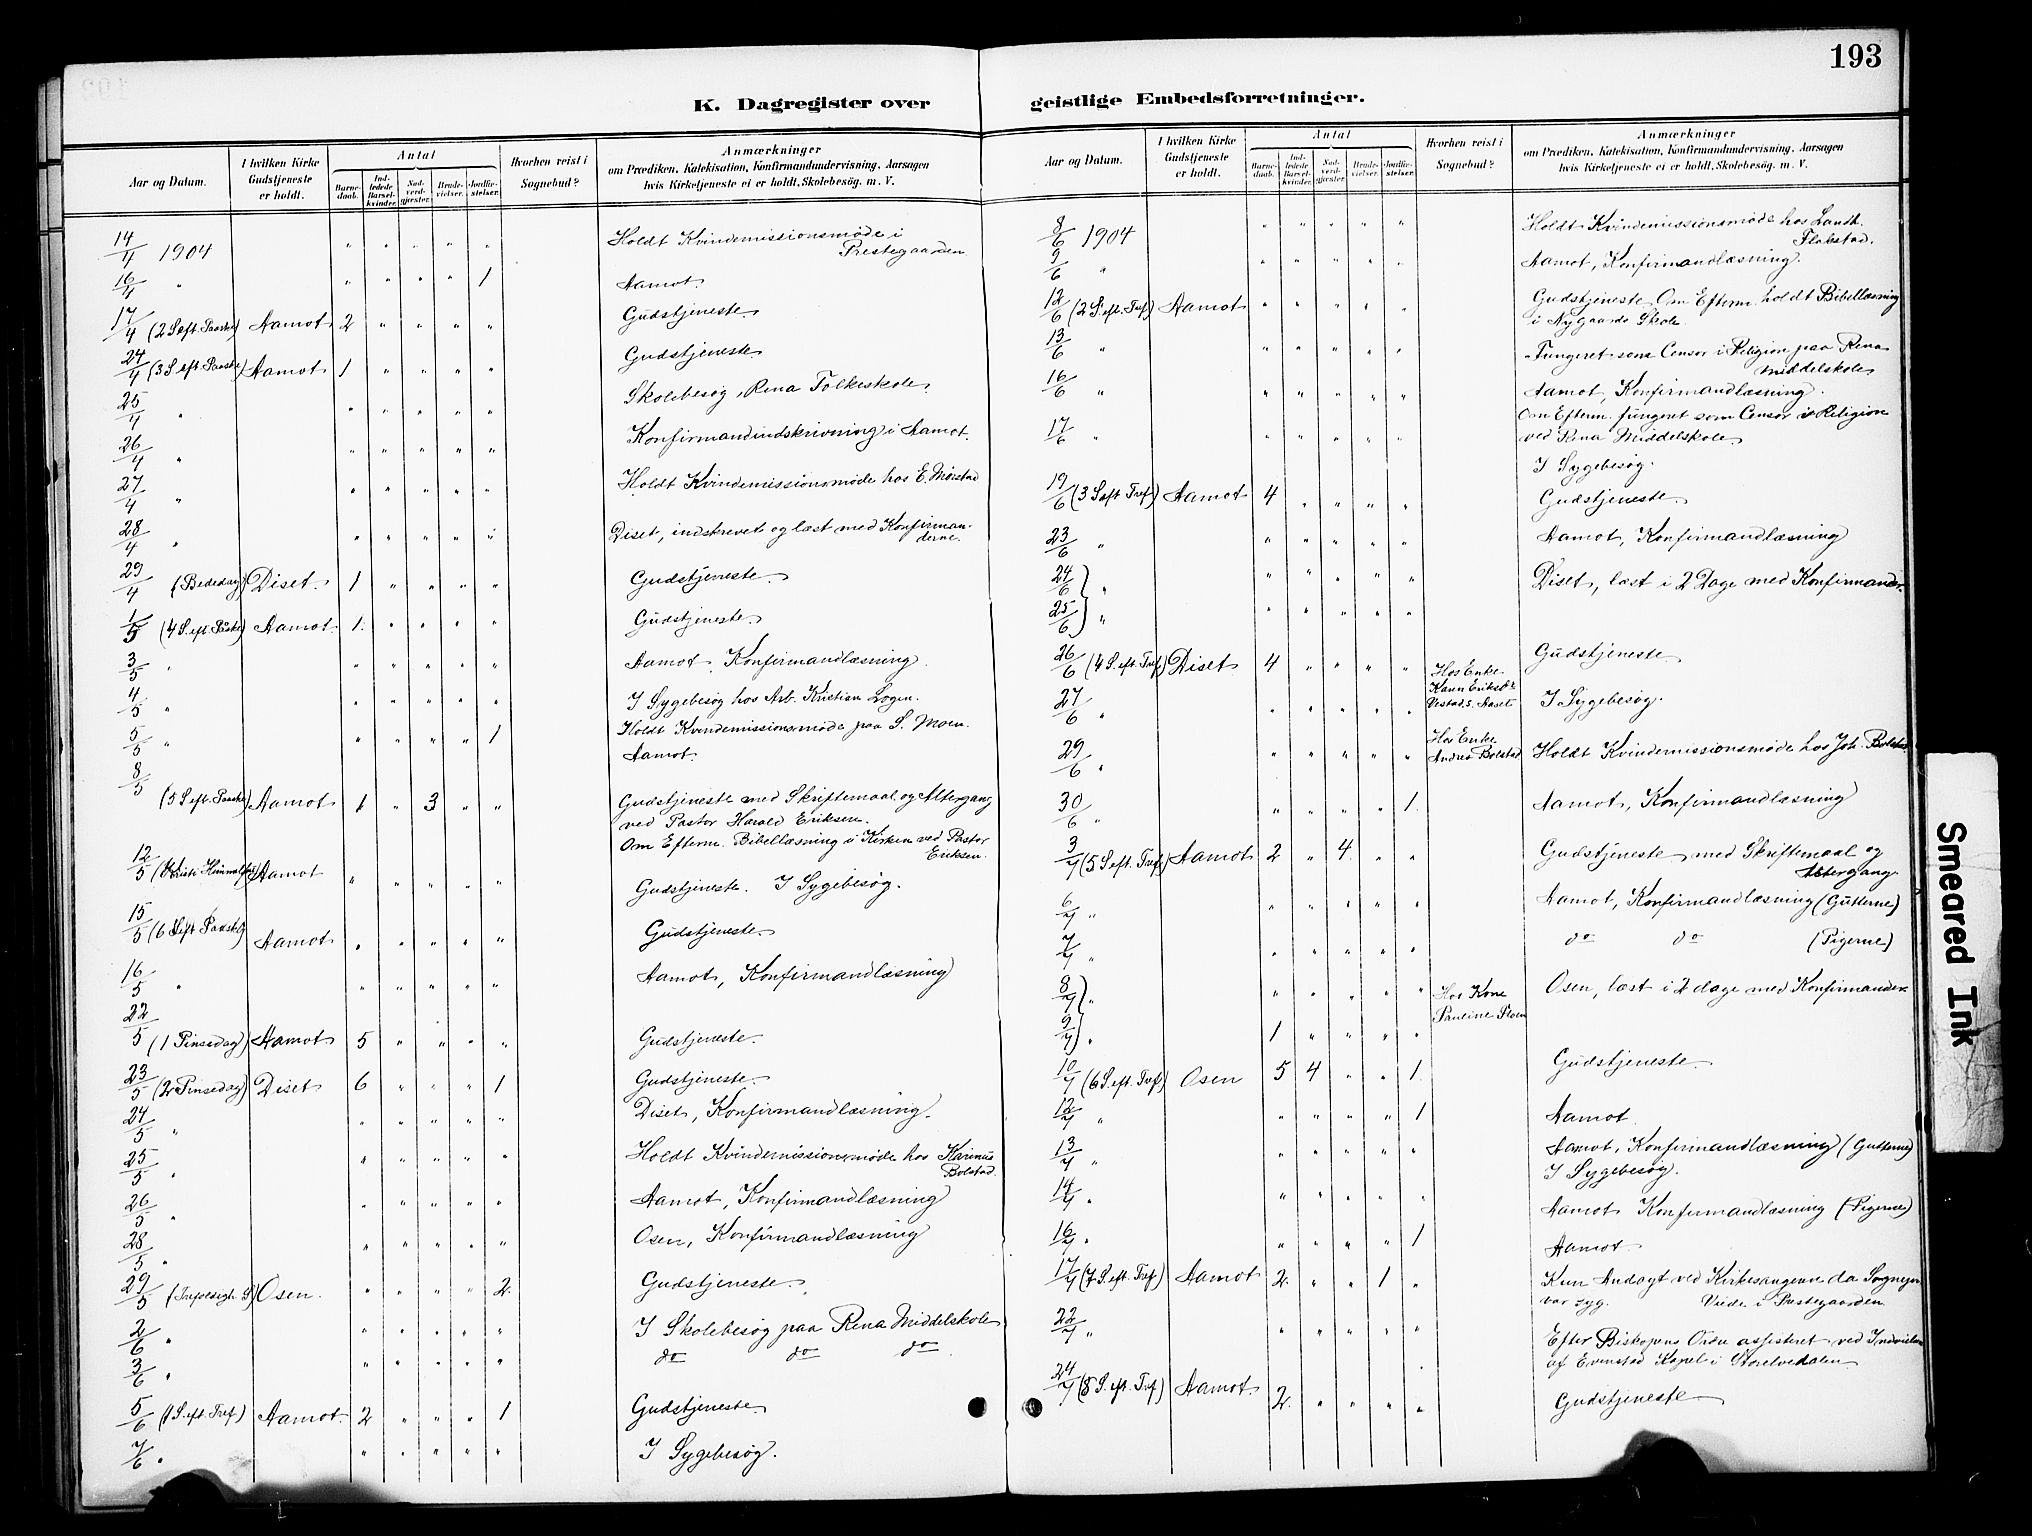 193
K. Dagregister over
geistlige Embedsforretninger.
Aar og Datum.
I hvilken Kirke Gudstjeneste er holdt.
Antal
Barnedaab.
Indledede Barselkvinder.
Nadverdgjæster.
Brudevielser.
Jordfæstelser.
Hvorhen reist i Sognebud?
Anmærkninger
om Prædiken, Katekisation, Konfirmandundervisning, Aarsagen
hvis Kirketjeneste ei er holdt, Skolebesøg, m. V.
14/4 1904 " " " " " Holdt Kvindemissionsmøde i
Prestegaarden
16/4 " " " " " 1 Aamot.
17/4 (2 S eft. Paaske) Aamot 2 " " " " Gudstjeneste
24/4 (3 S eft. Paaske) Aamot 1 " " " " Gudstjeneste
25/4 " " " " " " Skolebesøg, Rena Folkeskole.
26/4 " " " " " " Konfirmandindskrivning i Aamot.
27/4 " " " " " " Holdt Kvindemissionsmøde hos E. Mørstad
28/4 " " " " " " Diset, indskrevet og læst med Konfirman-
derne.
29/4 (Bededag) Diset 1 " " " " Gudstjeneste
1/5 (4 S. eft. Påske) Aamot 1 " " " " Gudstjeneste
3/5 " " " " " " Aamot, Konfirmandlæsning.
4/5 " " " " " " I Sygebesøg hos Arb. Kristian Logn.
5/5 " " " " " 1 Holdt Kvindemissionsmøde paa S. Moen.
Aamot.
8/5 (5 S eft. Paaske) Aamot 1 " 3 " " Gudstjeneste med Skriftemaal og Altergang
ved Pastor Harald Eriksen.
Om Efterm. Bibellæsning i Kirken ved Pastor
Eriksen.
12/5 (Kristi Himmelfart) Aamot " " " " " Gudstjeneste. I Sygebesøg.
15/5 (6 S eft Paaske) Aamot " " " " " Gudstjeneste
16/5 " " " " " " Aamot, Konfirmandlæsning
22/5 (1 Pinsedag) Aamot 5 " " " " Gudstjeneste
23/5 (2 Pinsedag) Diset 6 " " " 1 Gudstjeneste
24/5 " " " " " " Diset, Konfirmandlæsning.
25/5 " " " " " " Holdt Kvindemissionsmøde hos Karinus
Bolstad.
26/5 " " " " " Aamot, Konfirmandlæsning
28/5 " " " " " " Osen, Konfirmandlæsning
29/5 (Trefoldigh. S) Osen. " " " " 2 Gudstjeneste
2/6 " " " " " " I Skolebesøg paa Rena Middelskole
3/6 " " " " " " do do do
5/6 (1 S. eft. Tref.) Aamot 2 " " " 1 Gudstjeneste
7/6 " " " " " " I Sygebesøg.
Aar og Datum.
I hvilken Kirke Gudstjeneste er holdt.
Antal
Barnedaab.
Indledede Barselkvinder.
Nadverdgjæster.
Brudevielser.
Jordfæstelser.
Hvorhen reist i Sognebud?
Anmærkninger
om Prædiken, Katekisation, Konfirmandundervisning, Aarsagen
hvis Kirketjeneste ei er holdt, Skolebesøg, m. V.
8/6 1904 " " " " " Holdt Kvindemissionsmøde hos Landh.
Flakstad.
9/6 " " " " " " Aamot, Konfirmandlæsning.
12/6 (2 S. eft. Tref.) Aamot " " " " " Gudstjeneste. Om Efterm. holdt Bibellæsning
i Nygaards Skole.
13/6 " " " " " " Fungeret som Censor i Religion paa Rena
Middelskole
16/6 " " " " " " Aamot, Konfirmandlæsning.
Om Efterm. fungeret som Censor i Religion
17/6 " " " " " " ved Rena Middelskole
I Sygebesøg.
19/6 (3 S eft Tref.) Aamot 4 " " " " Gudstjeneste
23/6 " " " " " " Aamot, Konfirmandlæsning
24/6 " " " " " " Diset, læst i 2 Dage med Konfirmander.
25/6 " " " " "
26/6 (4 S. eft. Tref) Diset 4 " " " " Gudstjeneste
27/6 " " " " " " Hos Enke
Vestad, s. Aaset
I Sygebesøg.
29/6 " " " " " " Hos Enke
Andrea Bolstad
Holdt Kvindemissionsmøde hos Joh. Bolstad
30/6 " " " " " 1 Aamot, Konfirmandlæsning
3/7 (5 S eft. Tref.) Aamot 2 " 4 " " Gudstjeneste med Skriftemaal og
Altergang.
6/7 " " " " " " Aamot, Konfirmandlæsning (Gutterne)
7/7 " " " " " " do do (Pigerne)
8/7 " " " " " " Hos Kone
Pauline Moen
Osen, læst i 2 dage med Konfirmander
9/7 " 1 " " " "
10/7 (6 S. eft. Tref) Osen 5 4 " " 1 Gudstjeneste
12/7 " " " " " 1 Aamot
13/7 " " " " " " Aamot, Konfirmandlæsning (Gutterne)
I Sygebesøg.
14/7 " " " " " " Aamot Konfirmandlæsning (Pigerne)
16/7 " " " " " 1 Aamot
17/7 (7 S. eft. Tref.) Aamot 2 " " 1 " Kun Andagt ved Kirkesangeren da Sognepr
var syg. Viede i Prestegaarden
22/7 " " " " " " Efter Biskopens Ordre assisteret ved Indvielsen
af Evenstad Kapel i Storelvedalen
24/7 (8 S. eft. Tref) Aamot 2 " " " " Gudstjeneste
Smeared Ink